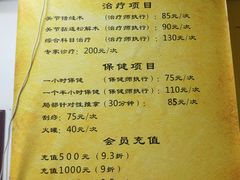 治疗项目
关节错缝术 (治疗师执行): 85元/次
关节黏连松解术 (治疗师执行): 90元/次
综合科目治疗 (治疗师执行): 130元/次
专家诊疗: 200元/次
保健项目
一小时保健 (保健师执行): 75元/次
一个半小时保健 (保健师执行): 110元/次
局部针对性推拿 (30分钟): 85元/次
刮痧: 75元/次
火罐: 40元/次
会员充值
充值500元 (9.3折)
充值1000元 (9折)